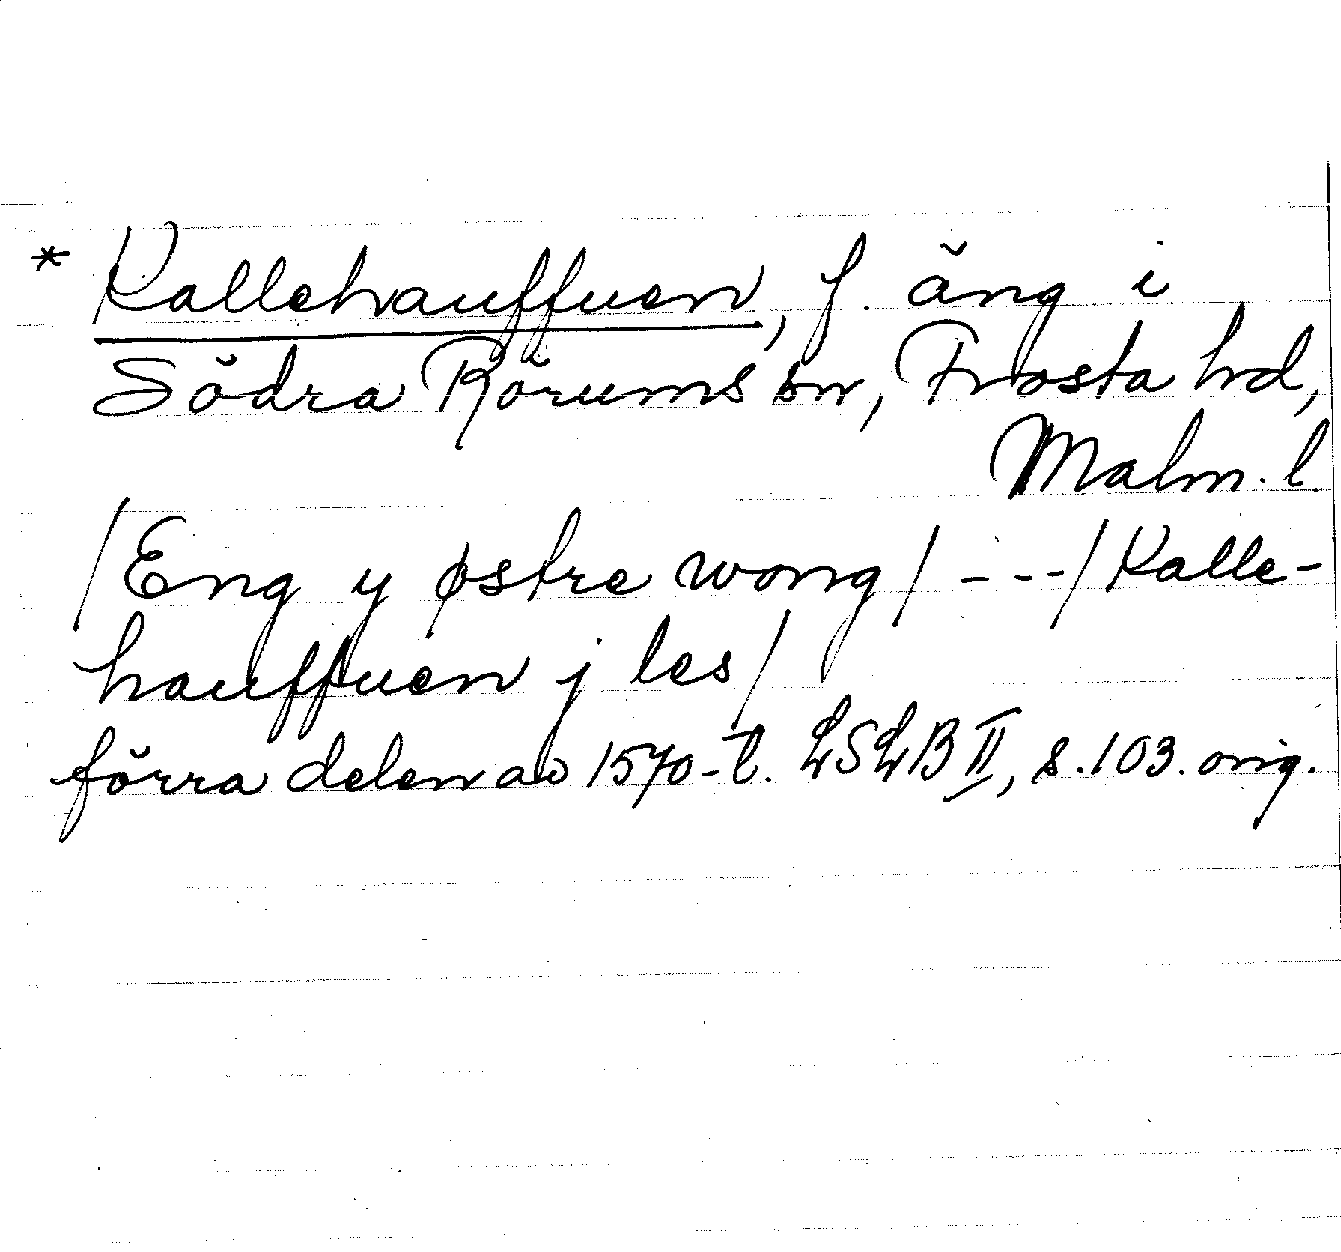 * Kallehauffuen, f. äng i
Södra Rörums sn, Frosta hd,
Malm. l.
/Eng y østre wong/ - - - /Kalle-
hauffuen j les/
förra delen av 1570-t. LSLB II, s. 103. orig.